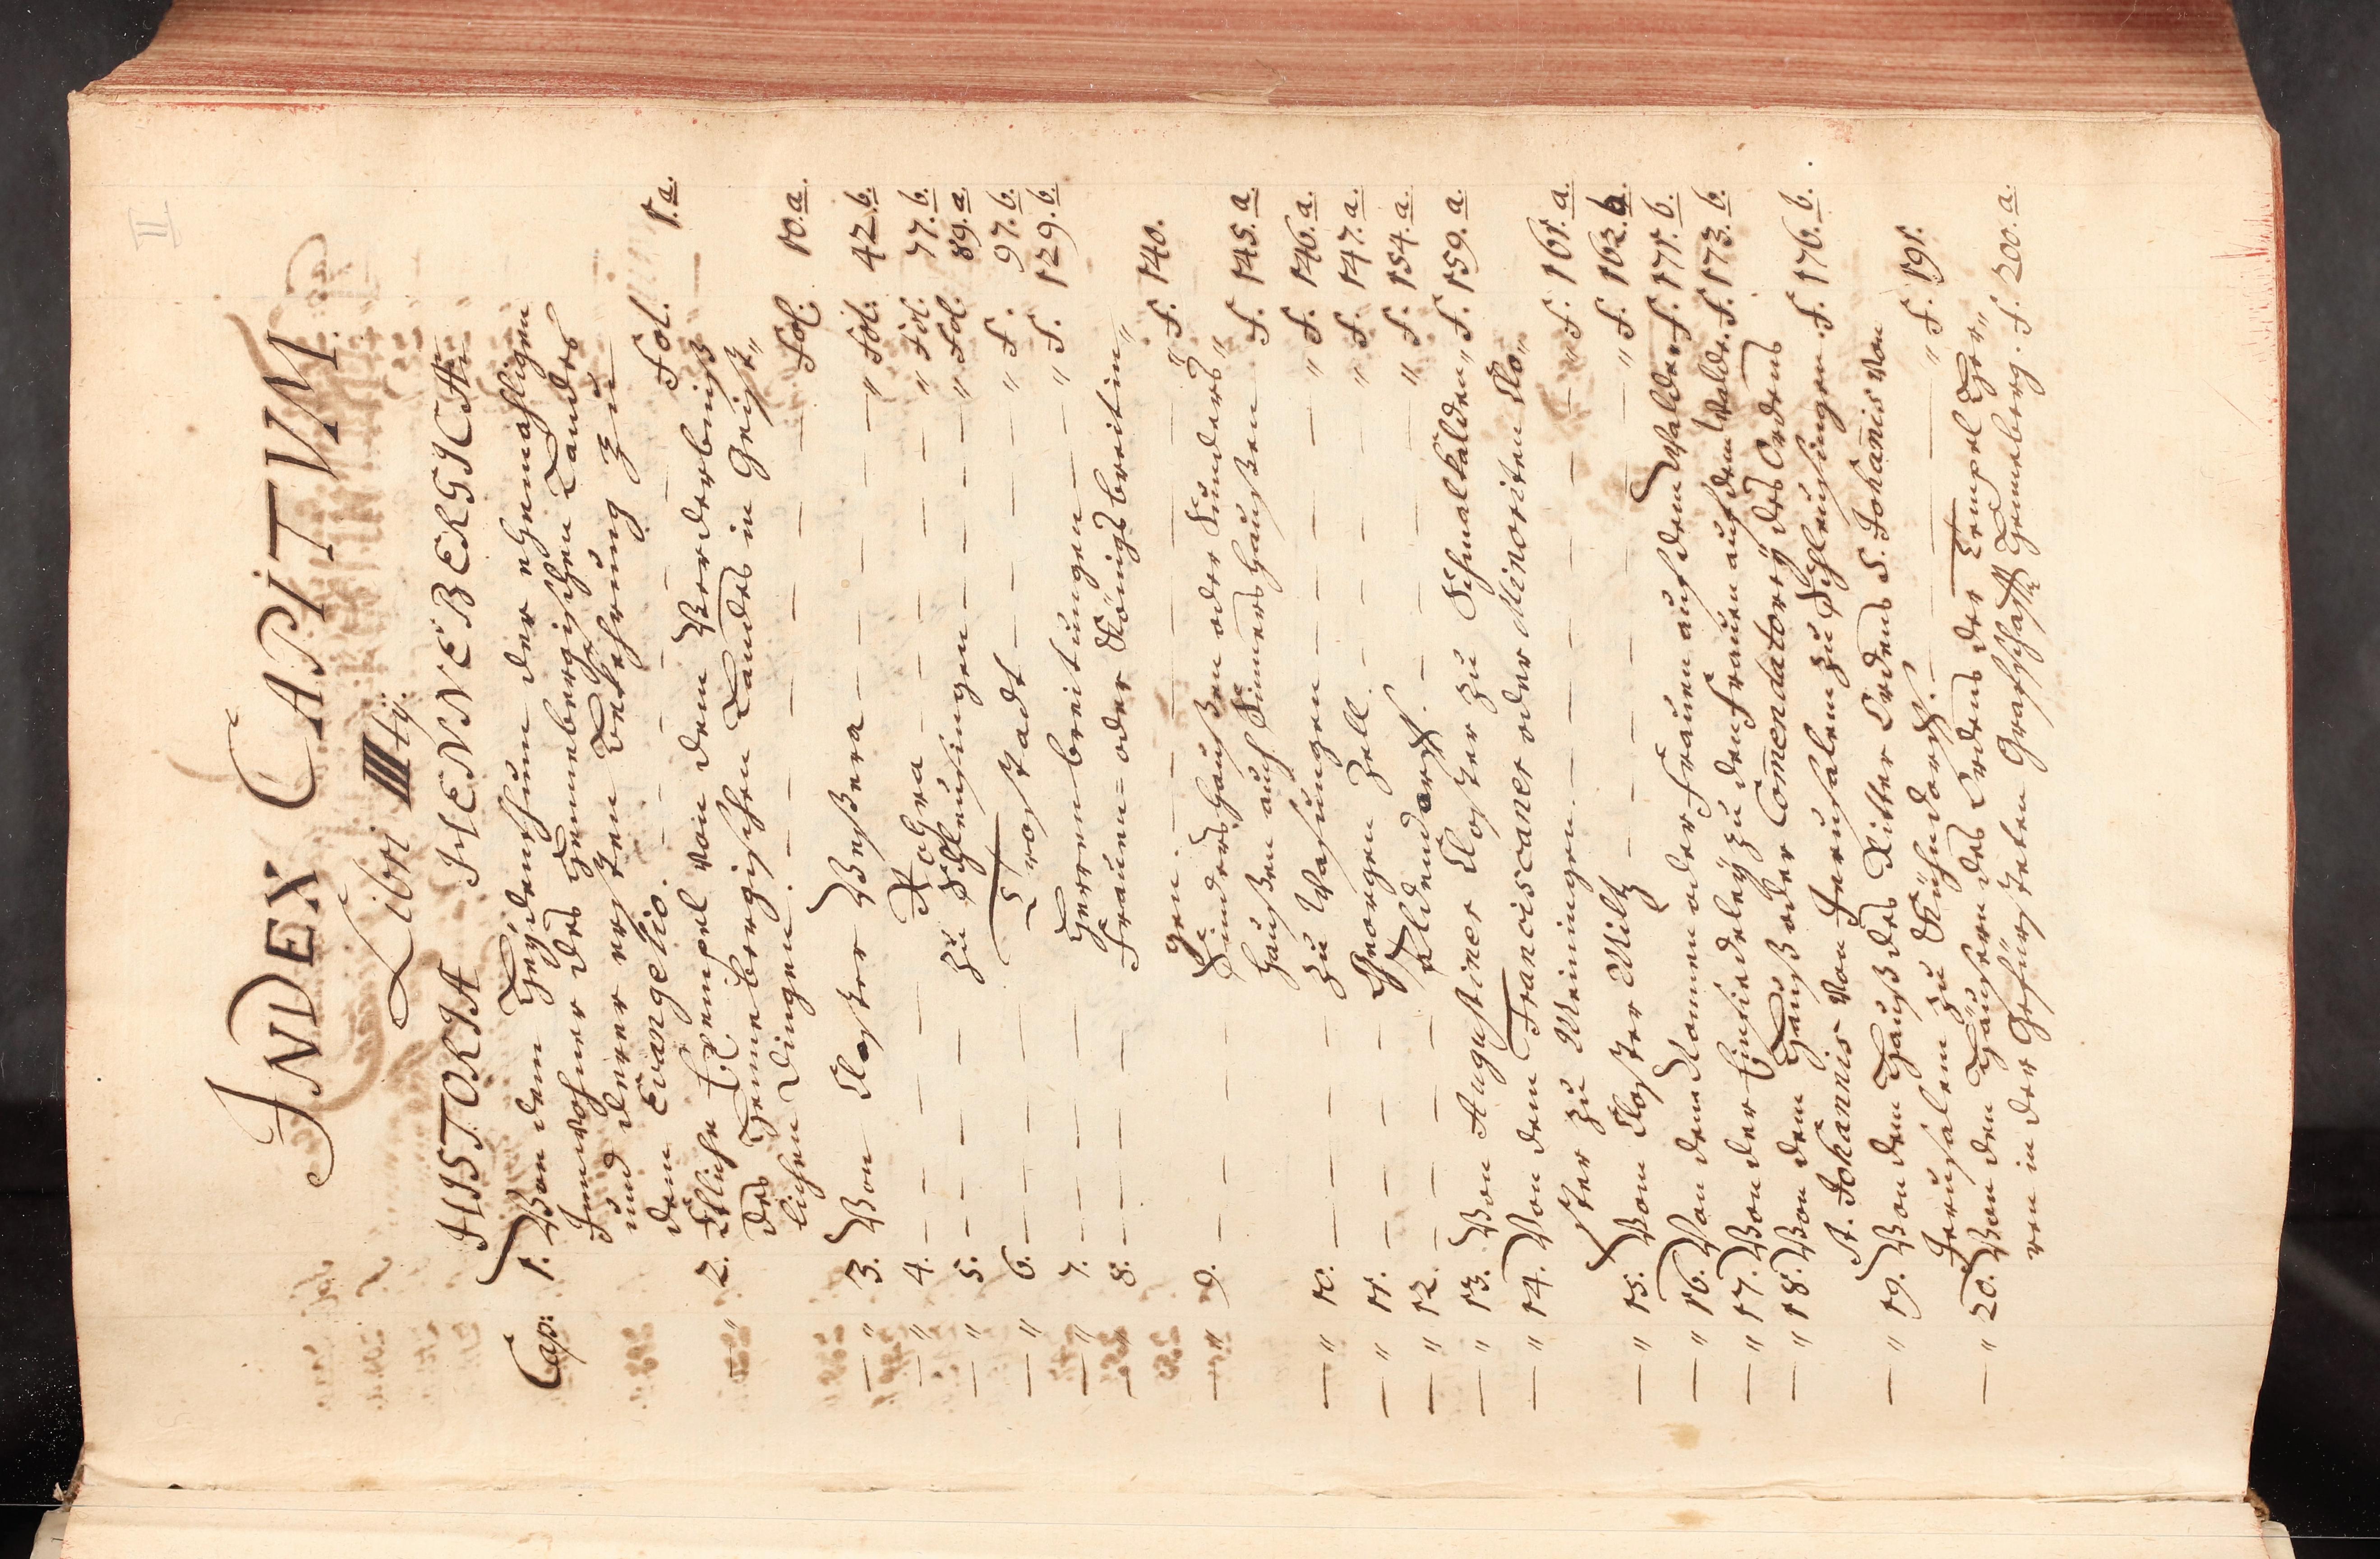 II
INDEX CAPITVM
Libri III tÿ.
HISTORIA HENNEBERGICÆ
Cap: 1. Von dem Heÿdenthum der ehemahligen
Innwohner des Hennebergischen Landes
und derer ersten Bekehrung zu
dem Evangelio. — — — — Fol. 1.a.
— " 2. Etliche Exempel von dem Verderbniß
des Hennebergischen Landes in Geist"
lichen Dingen. — — — — Fol. 10.a.
— " 3. Von Closter Veßera — — — — " Fol. 42.b.
— " 4. — — — Rohra — — — — " Fol. 77.b.
— " 5. — — — zu Schleusingen — — — " Fol. 89.a.
— " 6. — — — Trostadt — — — — " F. 97.b.
— " 7. — — — Herrenbreitungen — — " F. 129.b.
— " 8. — — — Frauen= oder Königsbreitun"
gen. — — — — " F. 140.
— " 9. — — — Sinders Haußen oder Sünders"
Haußen auch Sinners Haußen F. 145.a.
— " 10. — — — zu Wasungen — — — " F. 146.a.
— " 11. — — — Georgen Zell. — — — " F. 147.a.
— " 12. — — — Allendorff. — — — " F. 154.a.
— " 13. Von Augustiner Closter zu Schmalkalden " F. 159.a.
— " 14. Von dem Franciscaner oder Minoriten Clo"
ster zu Meiningen — — — — " F. 161.a.
— " 15. Vom Closter Miltz — — — — " F. 162.b.
— " 16. Von dem Nonnen oder Frauen auf dem Walde. F. 171.b.
— " 17. Von der Einsiedeleÿ zu den Frauen auf dem Walde. F. 173.b.
— " 18. Von dem Hauß oder Com̄endatoreÿ des Ordens
St. Johannis von Jerusalem zu Schleusingen. F. 176.b.
— " 19. Von dem Hauß des Ritter Ordens S. Johan̄is von
Jerusalem zu Kühndorff. — — — " F. 191.
— " 20. Von den Häusern des Ordens der Tempel Her"
ren in der Gefürsteten Graffschafft Henneberg. F. 200.a.